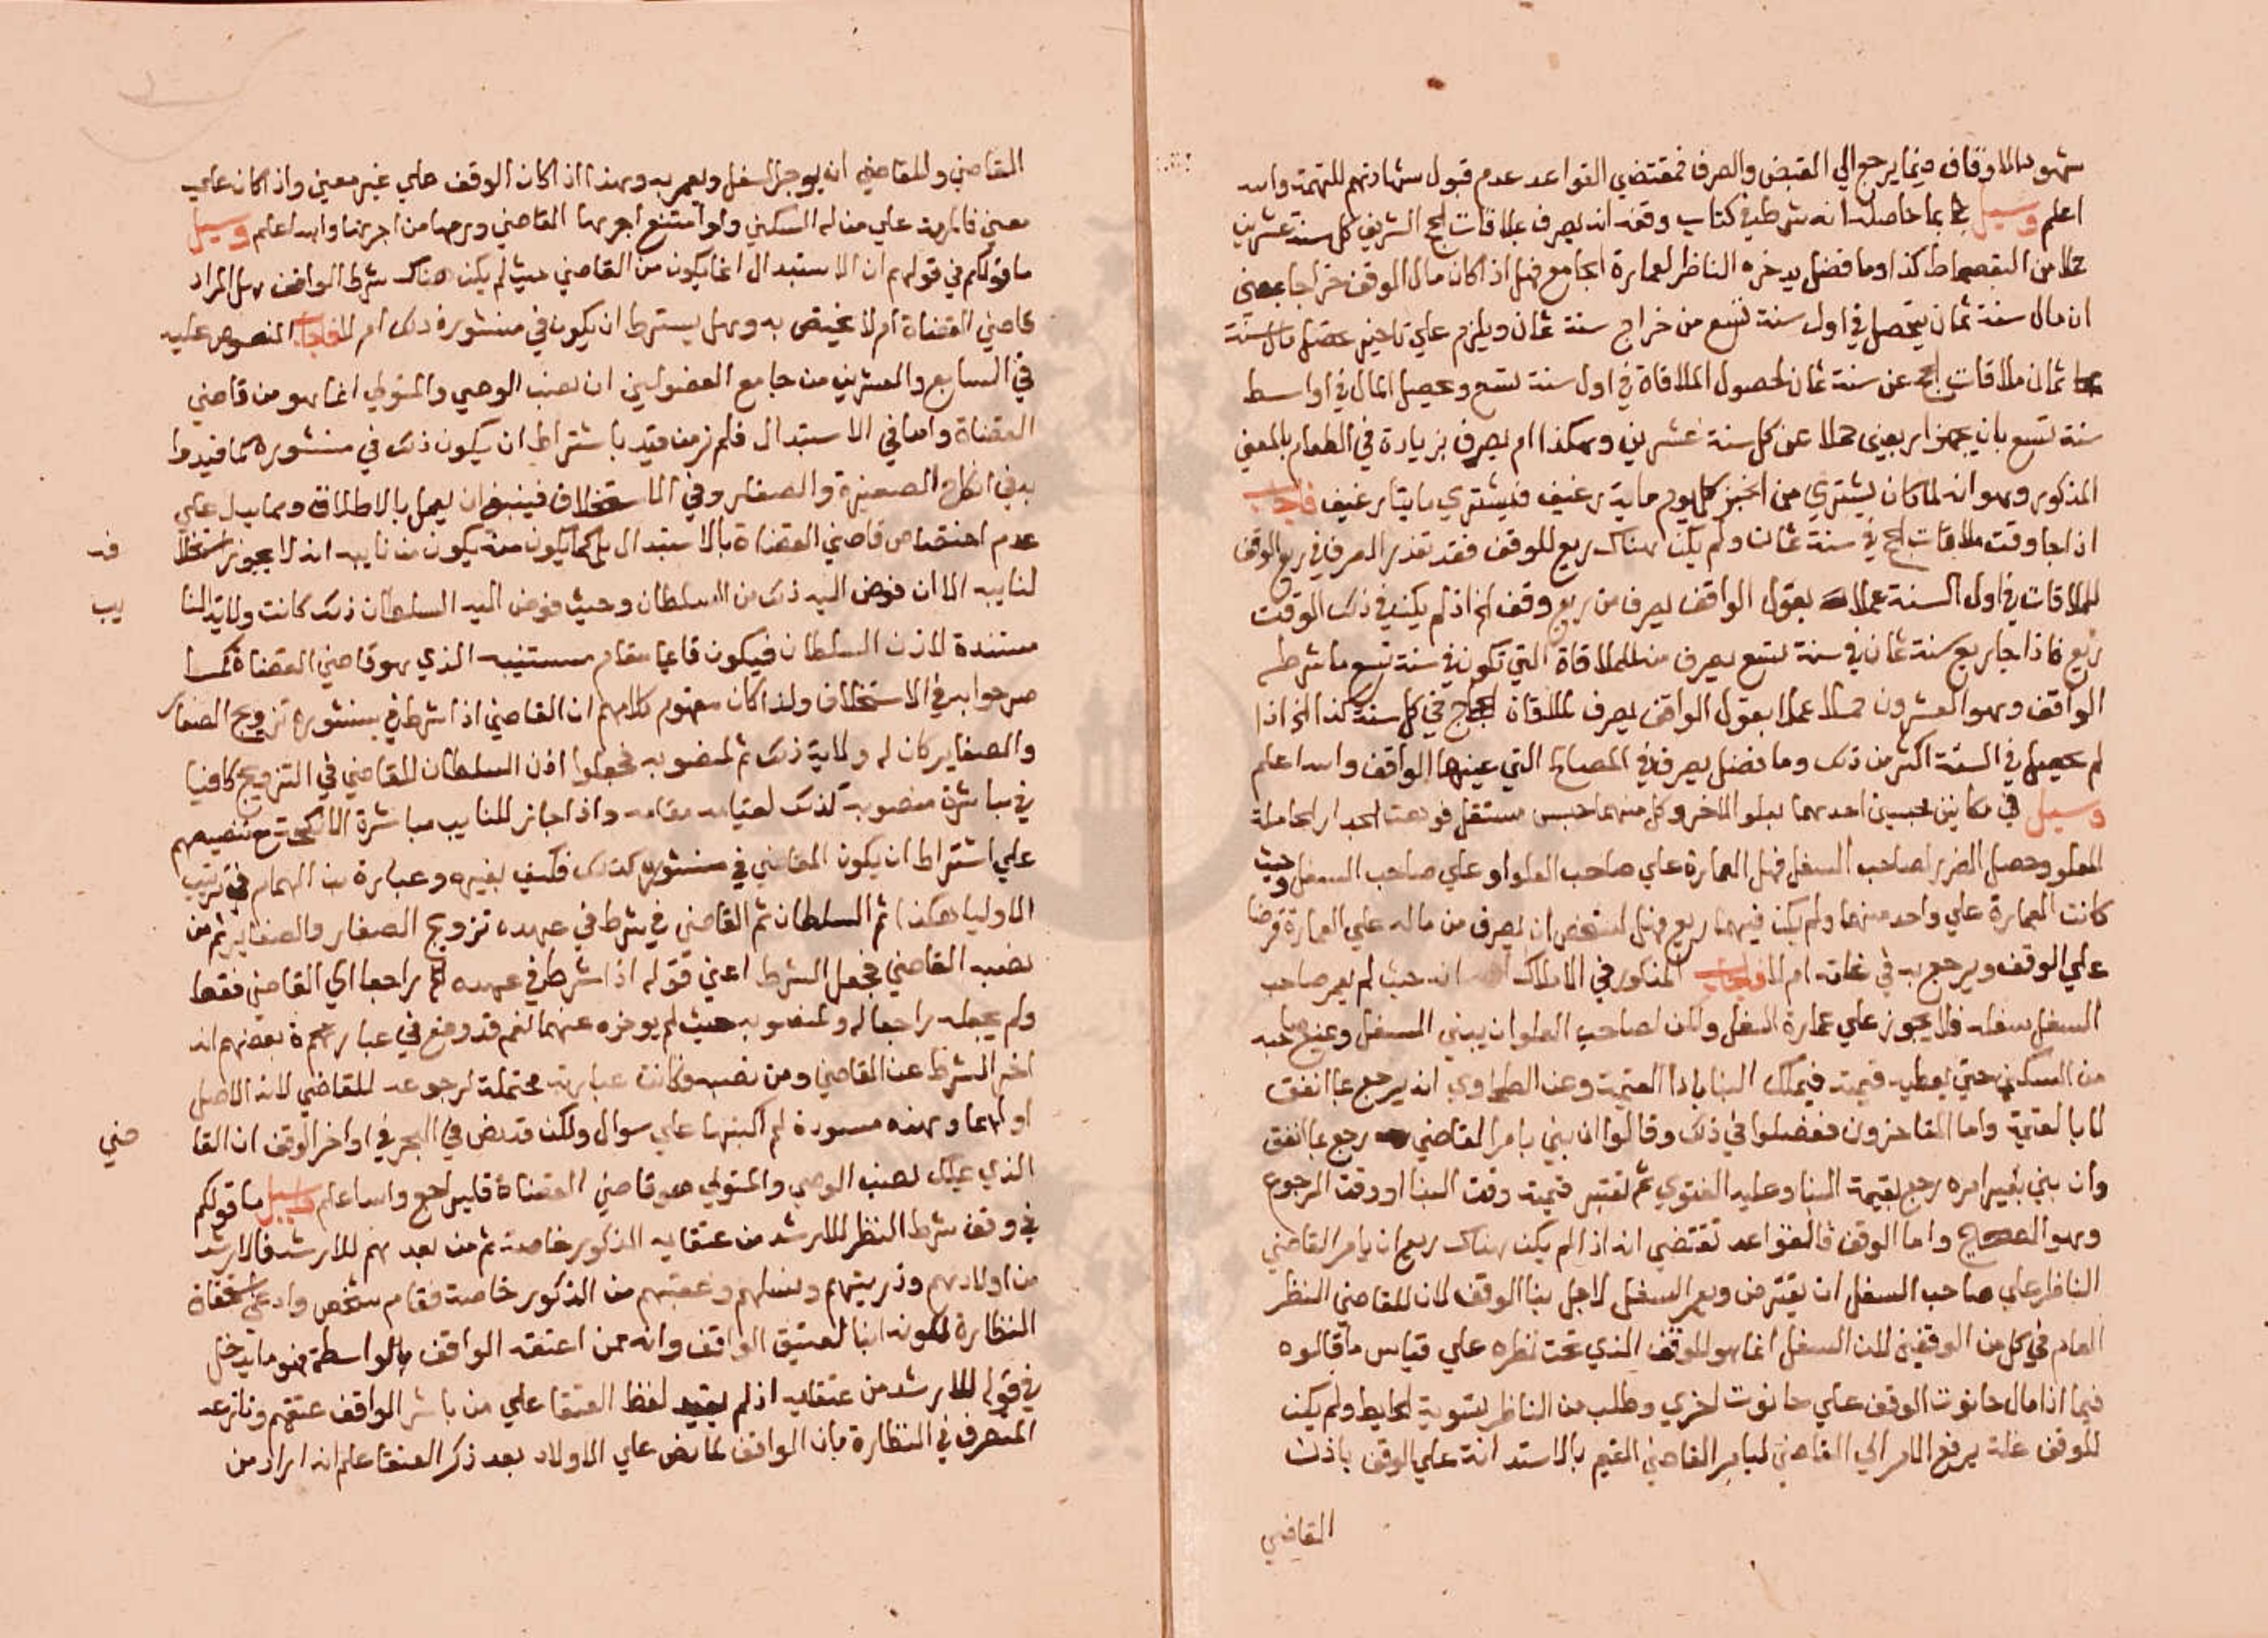 شهود الاوقاف فيما يرجع الي القبض والصرف فمقتضي القواعد عدم قبول شهادتهم للتهمة والله
اعلم وسيل بما حاصله انه شرط في كتاب وقفه انه يصرف بملاقات الحج الشريف كل سنة عشرين
حملا من البقصماط كذا وما فضل يدخره الناظر لعمارة الجامع فهل اذا كان مال الوقف خراجا بمعني
ان مال سنة ثمان يتحصل في اول سنة تسع من خراج سنة ثمان ويلزم علي تاخير تحصيل مال سنة
ثمان ملاقات الحج عن سنة ثمان لحصول الملاقاة في اول سنة تسع وتحصيل المال في اواسط
سنة تسع بان يجهز اربعين حملا عن كل سنة عشرين وهكذا ام يصرف بزيادة في الطعام بالمعني
المذكور وهو انه لما كان يشتري من الخبز كل يوم ماية رغيف فيشتري مايتا رغيف فاجاب
اذا جا وقت ملاقات الحج في سنة ثمان ولم يكن هناك ريع للوقف فقد تعذر الصرف في ريع الوقف
للملاقات في اول السنة عملا بقول الواقف يصرف من ريع وقفه الخ اذ لم يكن في ذلك الوقت
ريع فاذا جا ريع سنة ثمان في سنة تسع يصرف منه للملاقاة التي تكون في سنة تسع ما شرطه
الواقف وهو العشرون حملا عملا بقول الواقف يصرف لملاقاة الحجاج في كل سنة كذا الخ اذا
لم يحصل في السنة اكثر من ذلك وما فضل يصرف في المصالح التي عينها الواقف والله اعلم
وسيل في مكانين محبسين احدهما يعلو الاخر وكل منهما حبس مستقل فوهت الجدار الحاملة
للعلو وحصل الضرر لصاحب السفل فهل العمارة علي صاحب العلو او علي صاحب السفل وحيث
كانت العمارة علي واحد منهما ولم يكن فيهما ريع فهل لشخص ان يصرف من ماله علي العمارة قرضا
علي الوقف ويرجع به في غلته ام لا فاجاب المذكور في الاملاك انه حيث لم يعمر صاحب
السفل سفله فلا يجوز علي عمارة السفل ولكن لصاحب العلو ان يبني السفل ويمنع صاحبه
من السكني حتي يعطيه قيمته فيملك البنا باداا القيمة وعن الطحاوي انه يرجع بما انفق
لا بالقيمة واما المتاخرون ففصلوا في ذلك وقالوا ان بني بامر القاضي رجع بما انفق
وان بني بغير امره رجع بقيمة البنا وعليه الفتوي ثم تعتبر قيمته وقت البنا او وقت الرجوع
وهو الصحيح واما الوقف فالقواعد تقتضي انه اذا لم يكن هناك ريع ان يامر القاضي
الناظر علي صاحب السفل ان يقترض ويعمر السفل لاجل بنا الوقف لان للقاضي النظر
العام في كل من الوقفين لان السفل انما هو للوقف الذي تحت نظره علي قياس ما قالوه
فيما اذا مال حانوت الوقف علي حانوت اخري وطلب من الناظر تسوية الحايط ولم يكن
للوقف غلة يرفع الامر الي القاضي ليامر القاضي القيم بالاستدانة علي الوقف باذن
القاضي
القاضي وللقاضي ان يوجر السفل ويعمر به وهذا اذا كان الوقف علي غير معين واذا كان علي
معين فالمرمة علي من له السكني ولو امتنع اجرها القاضي ورمها من اجرتها والله اعلم وسيل
ما قولكم في قولهم ان الاستبدال انما يكون من القاضي حيث لم يكن هناك شرط الواقف هل المراد
قاضي القضاة ام لا يختص به وهل يشترط ان يكون في منشوره ذلك ام لا فاجاب المنصوص عليه
في السابع والعشرين من جامع الفصولين ان نصب الوصي والمتولي انما هو من قاضي
القضاة واما في الاستبدال فلم نر من قيد باشتراط ان يكون ذلك في منشوره كما قيدوا
به في انكاح الصغيرة والصغار وفي الاستخلاف فينبغي ان يعمل بالاطلاق ومما يدل علي
عدم اختصاص قاضي القضاة بالاستبدال بل كما يكون منه يكون من نايبه انه لا يجوز استخلا
فه
لنايبه الا ان فوض اليه ذلك من السلطان وحيث فوض اليه السلطان ذلك كانت ولاية النا
يب
مستندة لاذن السلطان فيكون قايما مقام مستنيبه الذي هو قاضي القضاة كما
صرحوا به في الاستخلاف ولذا كان مفهوم كلامهم ان القاضي اذا شرط في منشوره تزويج الصغار
والصغاير كان له ولاية ذلك ثم لمنصوبه فجعلوا اذن السلطان للقاضي في التزويج كافيا
في مباشرة منصوبه لذلك لقيامه مقامه واذا جاز للنايب مباشرة الانكحة مع تنصيصهم
علي اشتراط ان يكون القاضي في منشوره كذلك فكيف بغيره وعبارة بن الهمام في ترتيب
الاوليا هكذا ثم السلطان ثم القاضي في شرط في عهده تزويج الصغار والصغاير ثم من
نصبه القاضي فجعل الشرط اعني قوله اذا شرط في عهده راجعا الي القاضي فقط
ولم يجعله راجعا له ولمنصوبه حيث لم يوخره عنهما نعم قد وقع في عبارة بعضهم انه
اخر الشرط عن القاضي ومن نصبه وكانت عبارته محتملة لرجوعه للقاضي لانه الاصل
او لهما وهذه مسودة لم اكتبها علي سوال ولكن قد نص في البحر في اواخر الوقف ان القا
ضي
الذي يملك نصب الوصي والمتولي هو قاضي القضاة فليراجع والله اعلم وسيل ما قولكم
في وقف شرط النظر للارشد من عتقايه الذكور خاصة ثم من بعدهم للارشد فالارشد
من اولادهم وذريتهم ونسلهم وعقبهم من الذكور خاصة فقام شخص وادعي استحقاق
النظارة لكونه ابنا لعتيق الواقف وانه ممن اعتقه الواقف بالواسطة فهو ما يدخل
في قوله للارشد من عتقايه اذ لم يقيد لفظ العتقا علي من باشر الواقف عتقهم ونازعه
المتصرف في النظارة بان الواقف لما نص علي الاولاد بعد ذكر العتقا علم انه اراد من